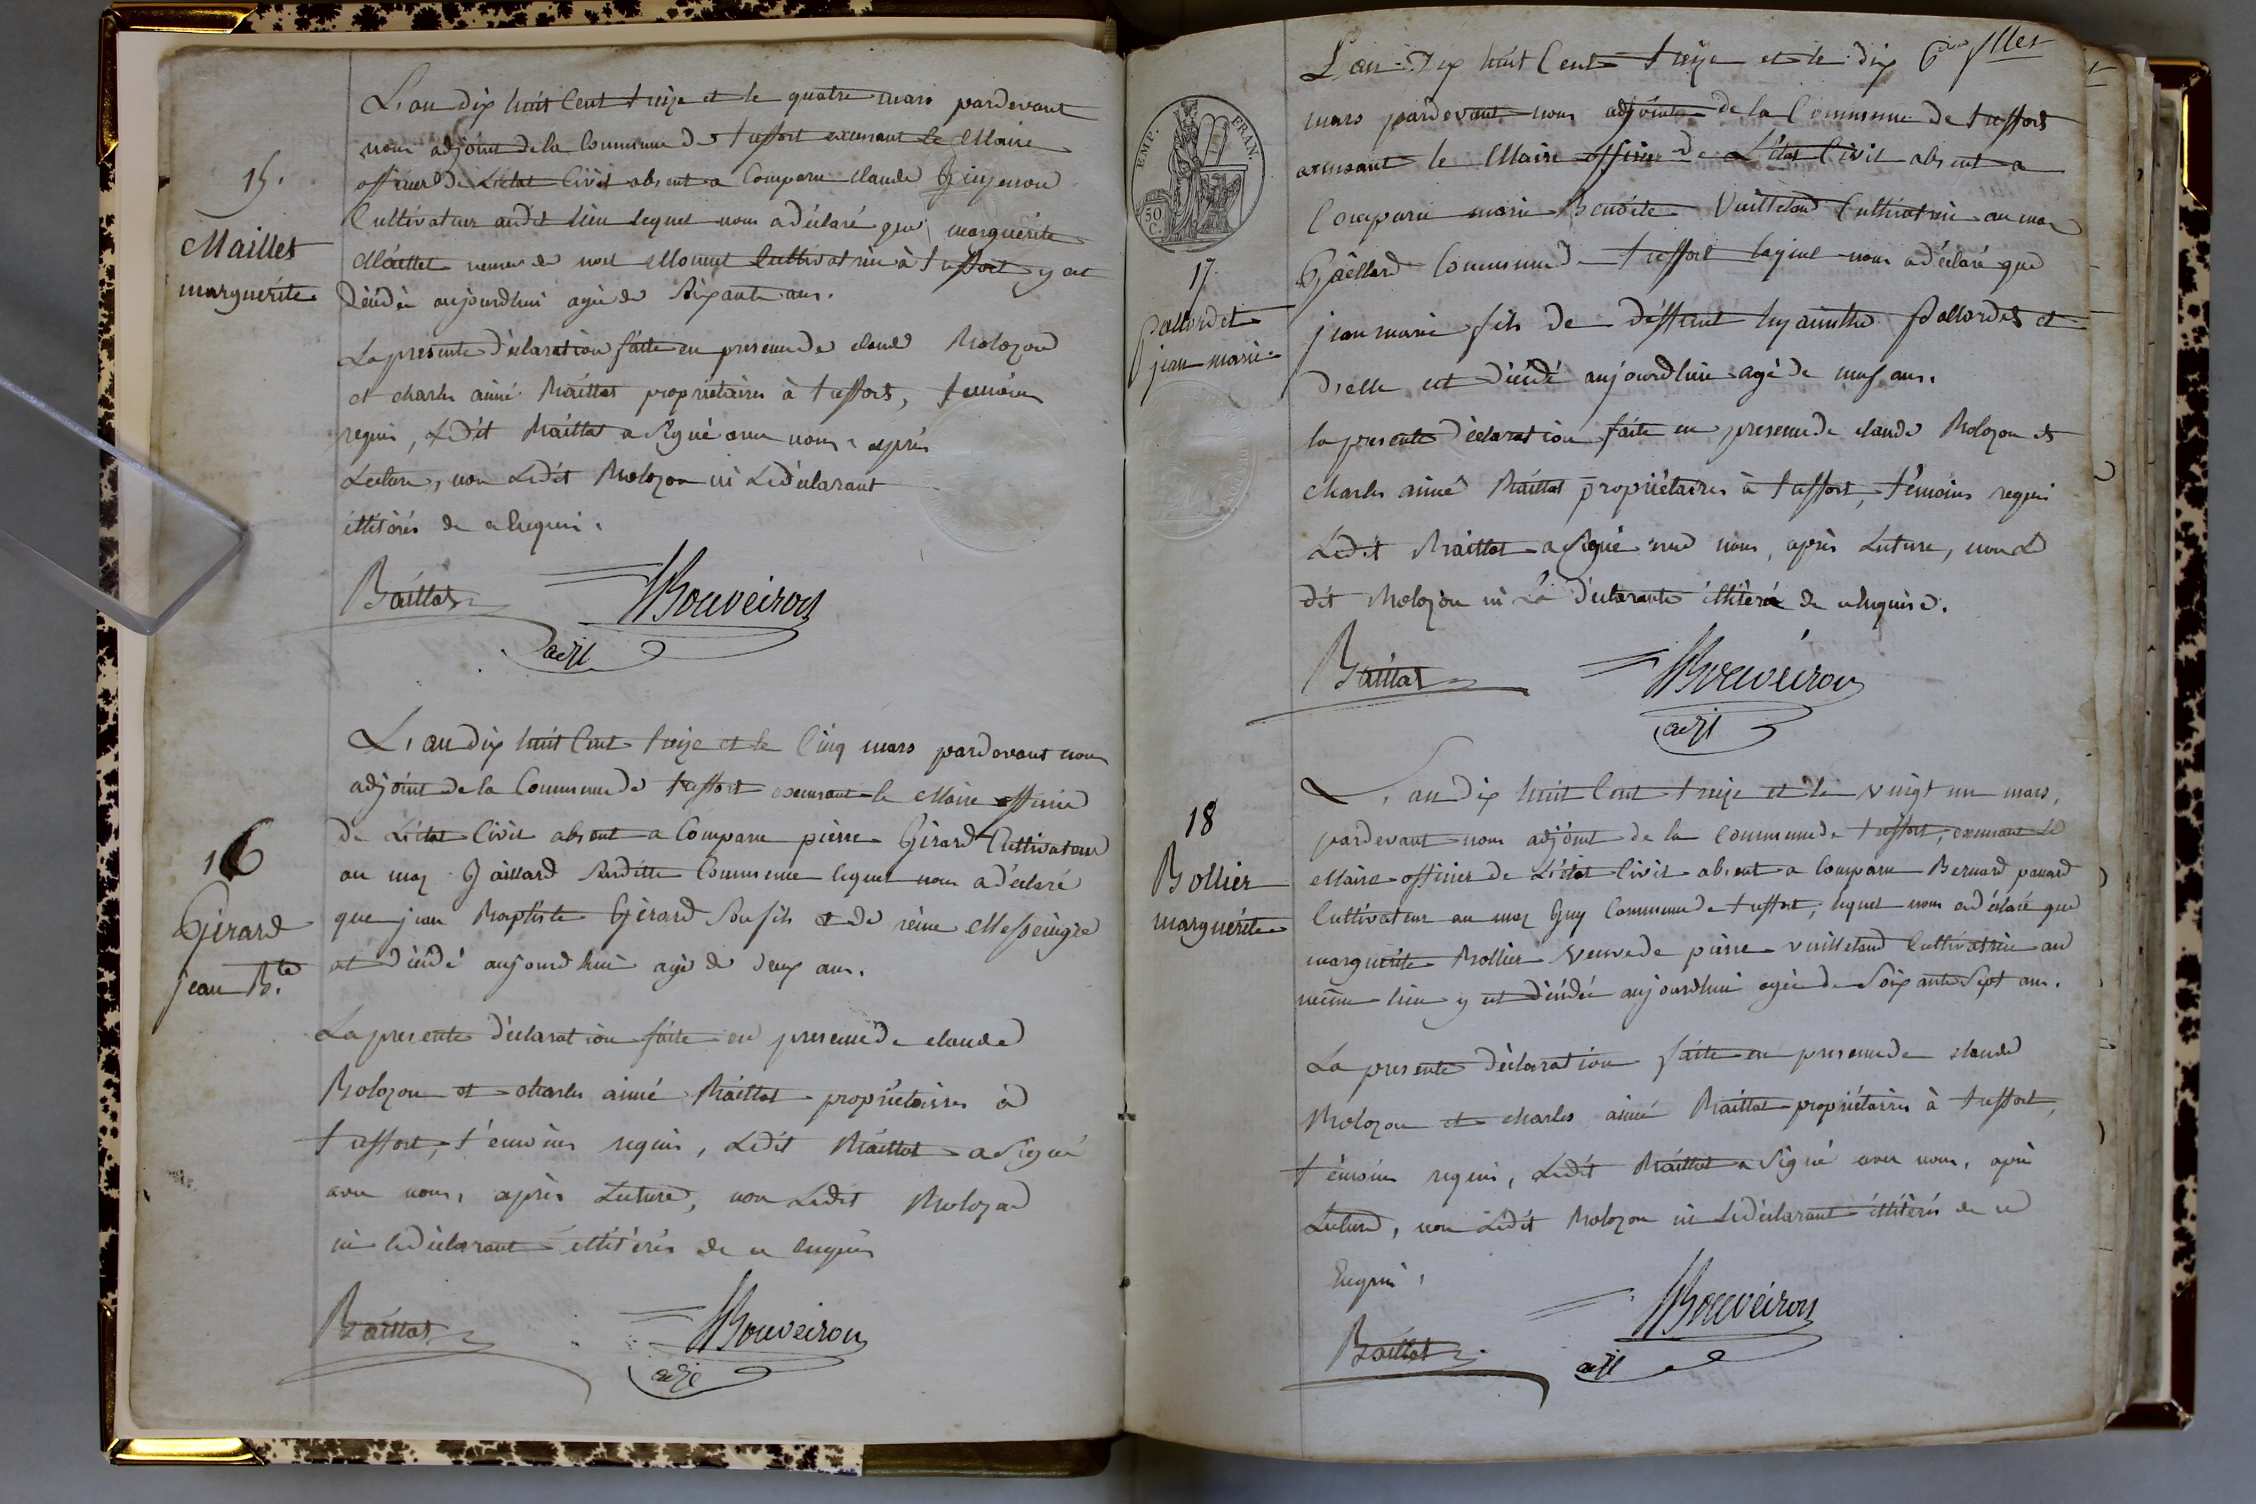 L'an dix huit Cent treize et le quatre mars pardevant
nous adjoint de la Commune de treffort exercant le Maire
officier de L'état Civil absent a Comparu claude
Cultivateur audit lieu lequel nous a déclaré que marguérite
Maillet veuve de noel Monnet Cultivatrice à treffort y est
Décédée aujourdhui agée de Soixante ans.
La presente déclaration faite en presence de claude Bolozon
et charles aimé Baillat propriétaires à treffort, temoins
requis, Ledit Baillat a signé avec nous, après
Lecture, non Ledit Bolozon ni Ledéclarant
illitérés de ce Enquis.
15.
Maillet
marguérite
Baillat Bouveiron
adjt
L'an dix huit Cent treize et le Cinq mars pardevant nous
adjoint de la Commune de treffort exercant le Maire officier
de L'état Civil absent a Comparu pierre Gérard Cultivateur
au maz Gaillard Susditte Commune lequel nous a déclaré
que jean Baptiste Gérard Son fils et de réine
est décédé aujourd'hui agé de deux ans.
16
Gérard
jean Bte.
La presente déclaration faite en presence de claude
Bolozon et charles aimé Baillat propriétaires à
treffort, témoins requis, Ledit Baillat a Signé
avec nous, après Lecture, non Ledit Bolozon
ni Ledéclarant illitérés de ce Enquis
Baillat Bouveiron
adjt
6me fllet
EMP. FRAN.
50
C.
L'an Dix huit Cent treize et le dix
mars pardevant nous adjoint de la Commune de treffort
exercant le Maire officier de L'état Civil absent a
Comparu marie Benoite Vuilletand Cultivatrice au maz
Gaillard Commune de treffort laquelle nous a déclaré que
jean marie fils de deffunt hyacinthe Pallordet et
D'elle est Décédé aujourdhui agé de neuf ans.
17
Pallordet
jean marie
la presente déclaration faite en presence de claude Bolozon et
charles aimé Baillat propriétaires à treffort, témoins requis
Ledit Baillat a Signé avec nous, après Lecture, non Le
dit Bolozon ni La déclarante illitérée de ce Enquise.
Baillat Bouveiron
adjt
L'an dix huit Cent treize et le vingt un mars,
pardevant nous adjoint de la Commune de treffort, exercant Le
Maire officier de L'état Civil absent a Comparu Bernard panard
Cultivateur au maz Guy Commune de treffort, lequel nous a déclaré que
marguérite Bollier Veuve de pierre vuilletand Cultivatrice au
même lieu y est décédée aujourdhui agée de Soixante Sept ans.
18
Bollier
marguérite
La presente déclaration faite en presence de claude
Bolozon et charles aimé Baillat propriétaires à treffort,
témoins requis, Ledit Baillat a Signé avec nous, après
Lecture, non Ledit Bolozon ni Ledéclarant illitérés de ce
Enquis.
Baillat Bouveiron
adjt